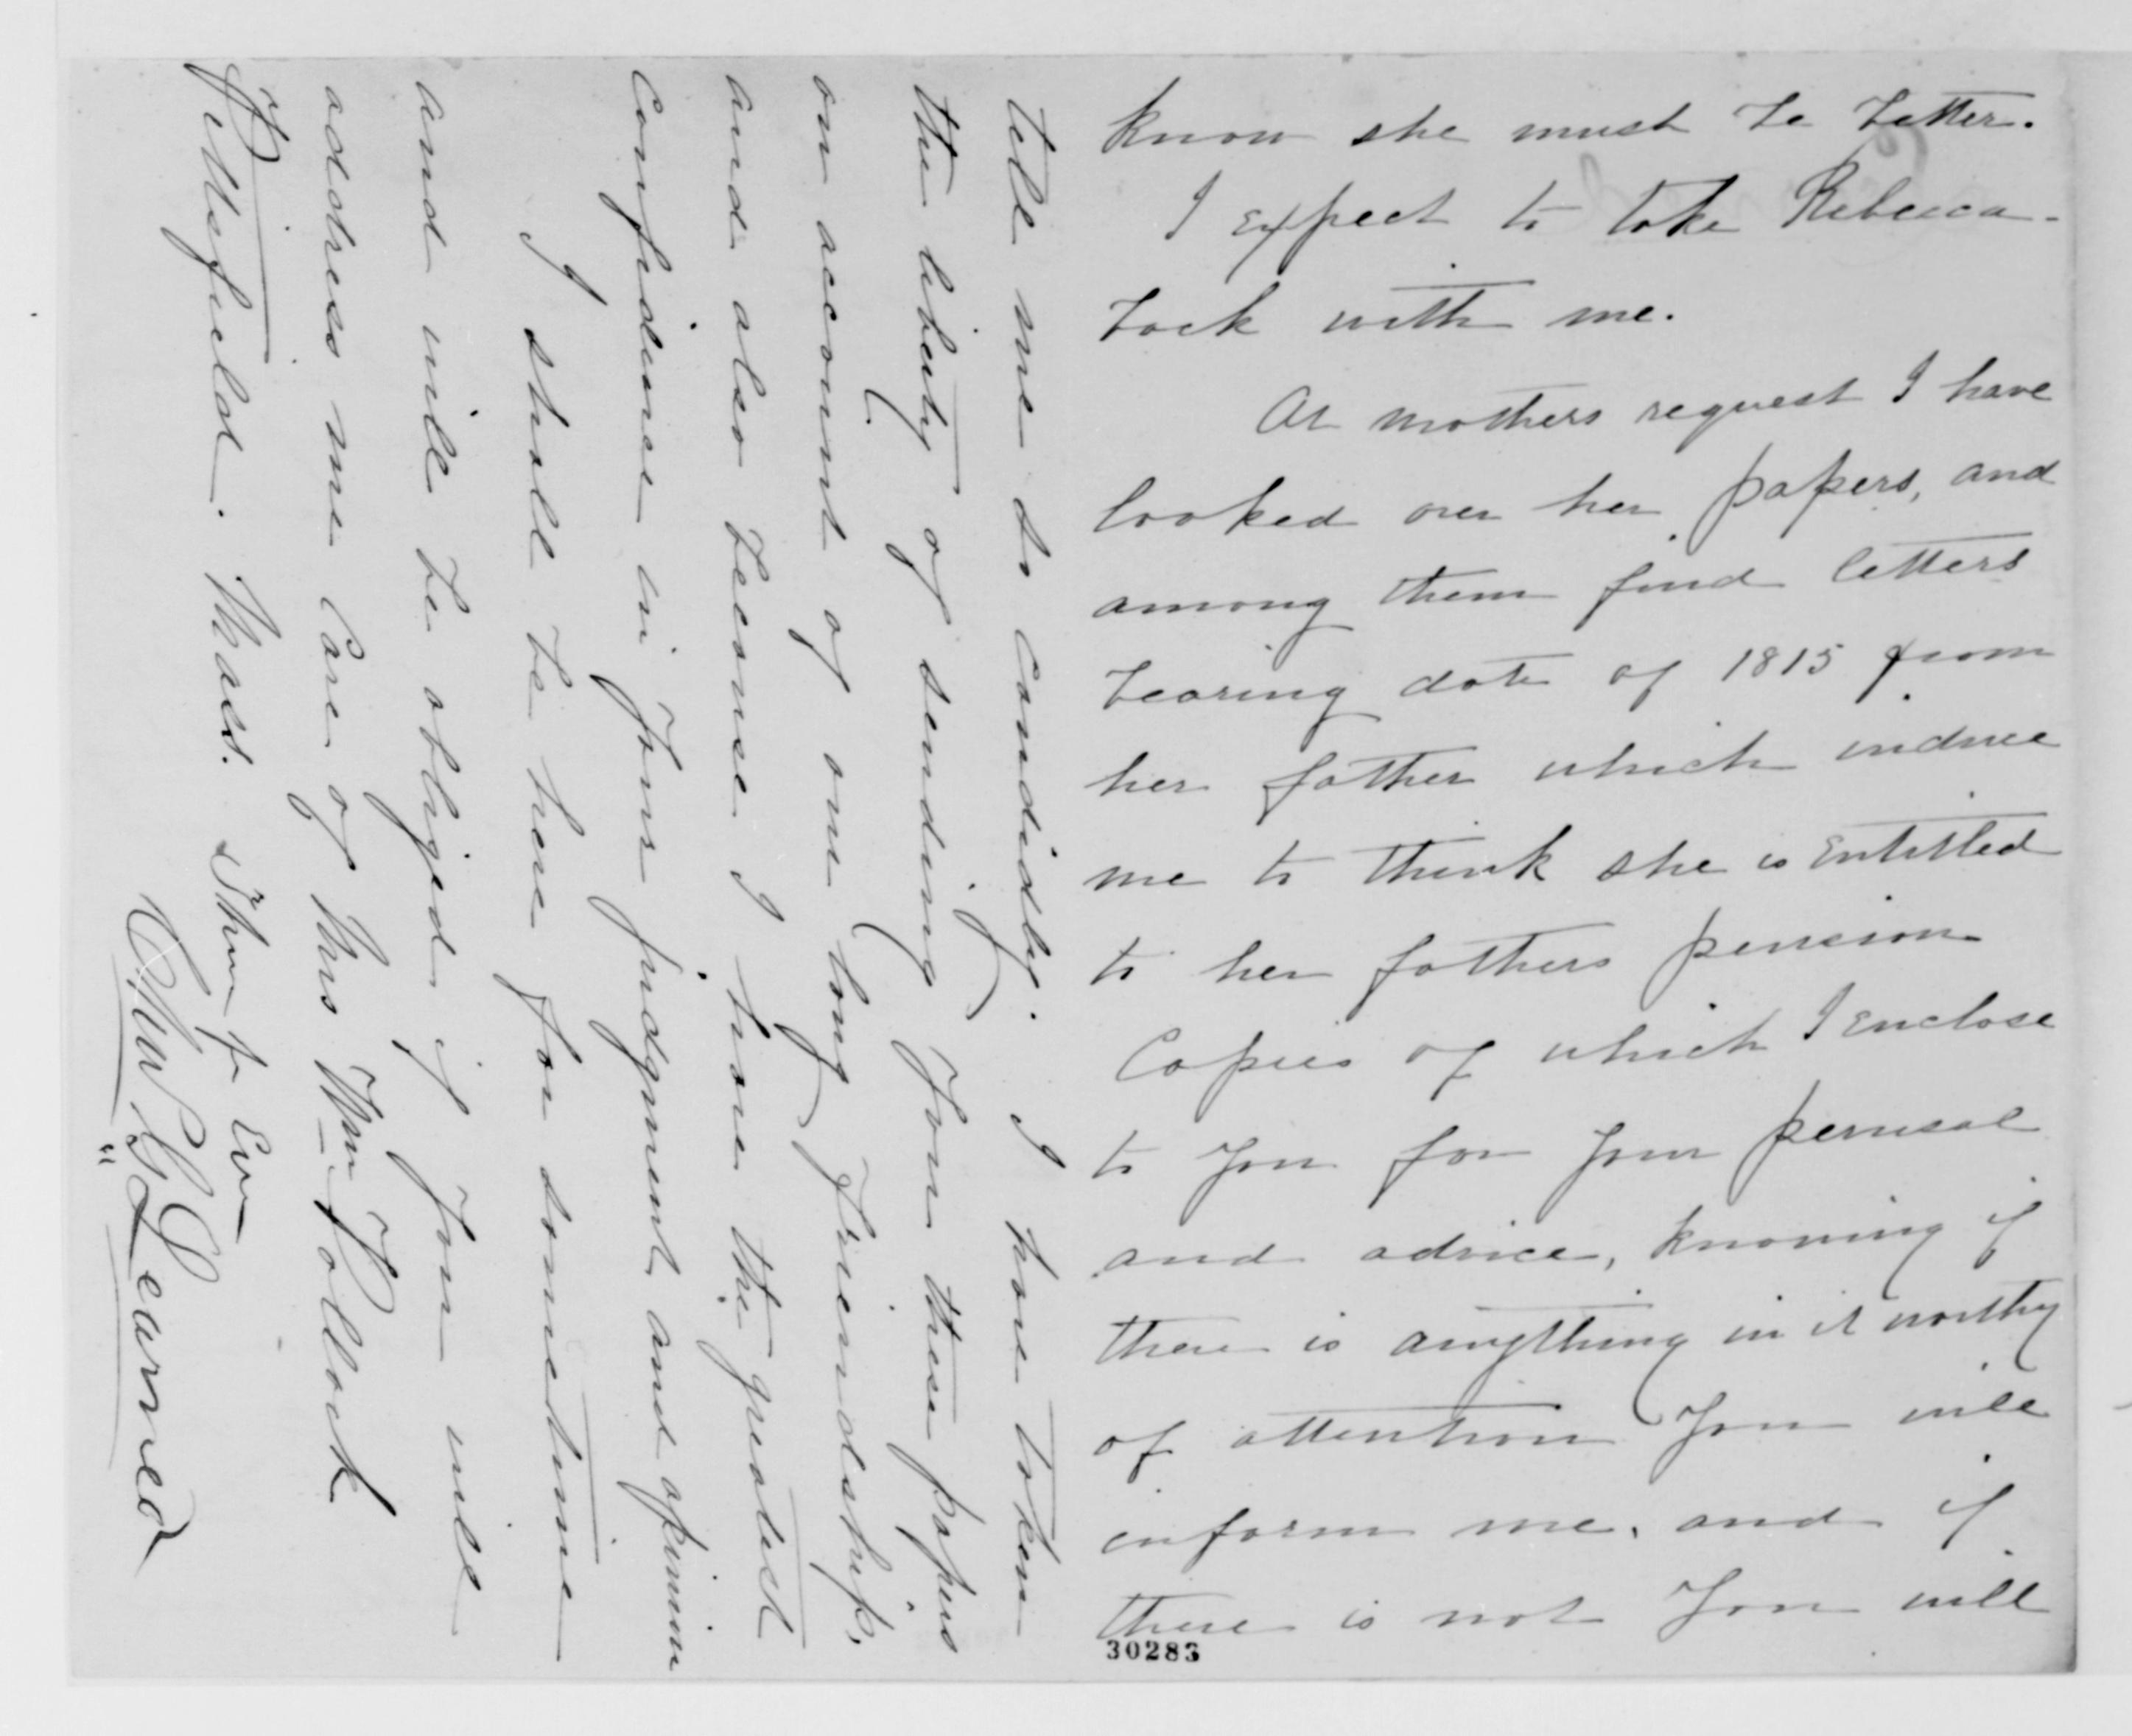 know she must be better.
I expect to take Rebecca
back with me.
At mothers request I have
looked over her papers, and
among them find letters
bearing date of 1815 from
her father which induce
me to think she is entitled
to her fathers pension
Copies of which I enclose
to you for your perusal
and advice, knowing if
there is anything in it worthy
of attention you will
inform me, and if
there is not you will
30283
tell me so candidly. I have taken
the liberty of sending you these papers
on account of our long friendship,
and also because I have the greatest
confidence in your judgment and opinion
I shall be here for sometime
and will be obliged if you will
address me Care of Mrs Wm Pollock
Pittsfield. Mass. Thine for Ever
Learned